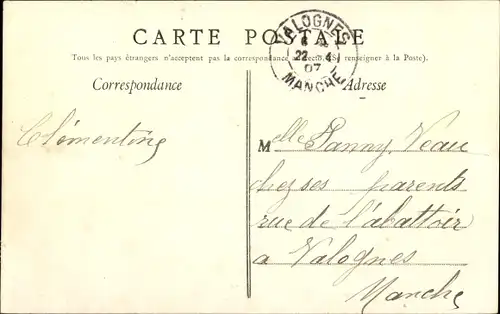 CARTE POSTALE
Tous les pays étrangers n'acceptent pas la correspondance au recto. (Se renseigner à la Poste).
VALOGNES
22 4
07
MANCHE
Correspondance
Adresse
Clémentine
Melle Fanny Veau
chez ses parents
rue de l'abattoir
a Valognes
Manche